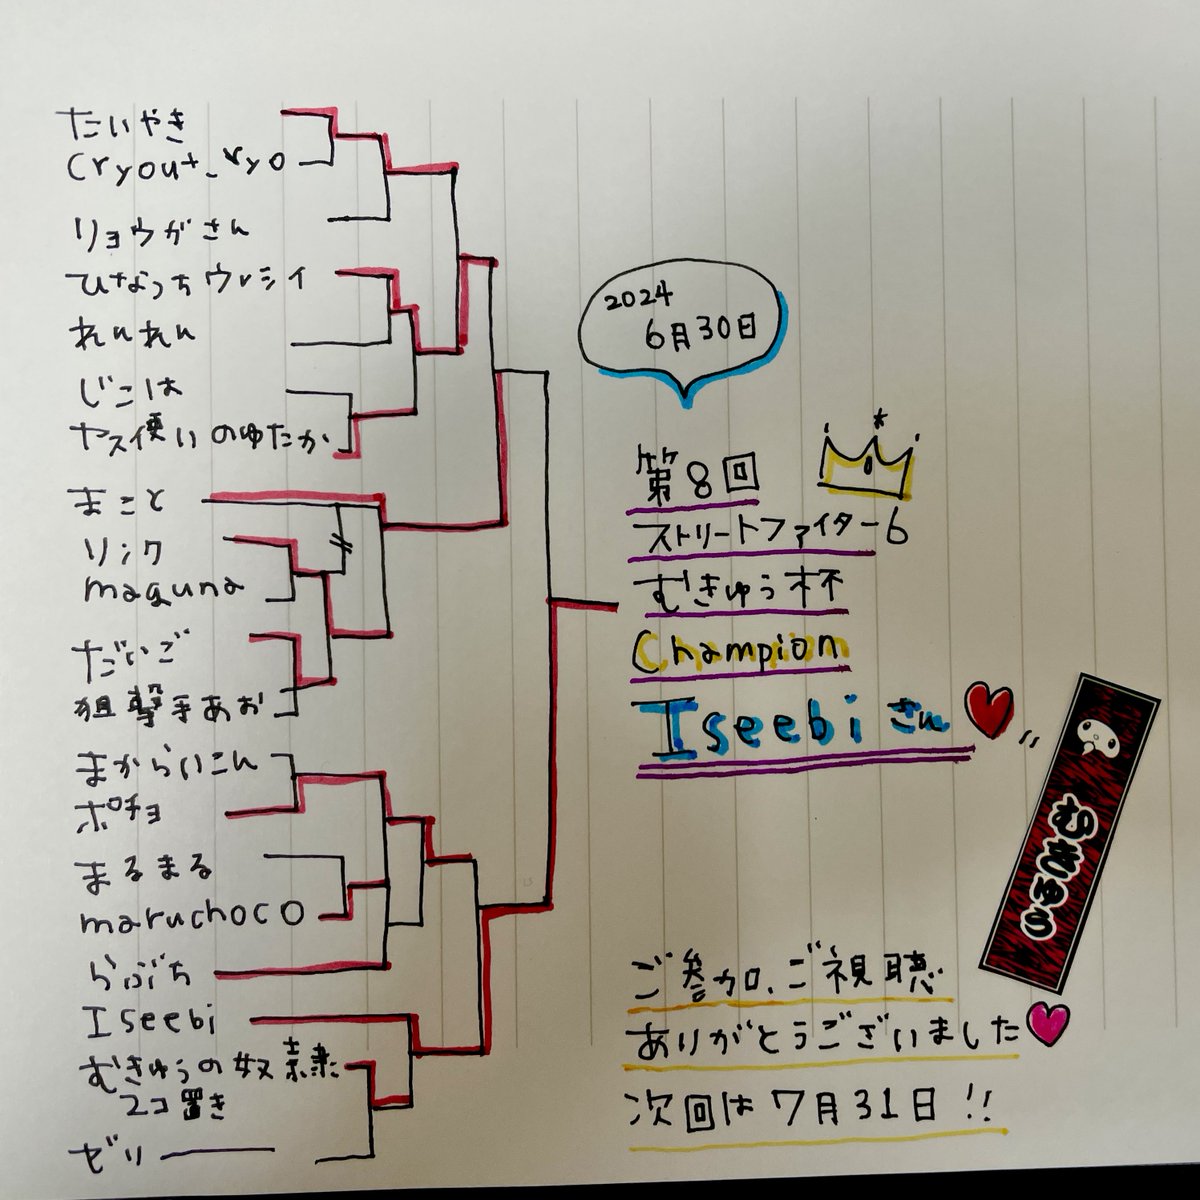 たいやき
Cryout_ryo
リョウガさん
ひなっちウレシイ
れいれい
じこは
ヤス使いのゆたか
まこと
リンク
maguna
だいご
狙撃手あお
まからいこん
ポチョ
まるまる
maruchoco
らぶち
Iseebi
むきゅうの奴隷
2コ置き
ゼリー
2024
6月30日
第8回
ストリートファイター6
むきゅう杯
Champion
Iseebiさん
むきゅう
ご参加、ご視聴
ありがとうございました
次回は7月31日!!